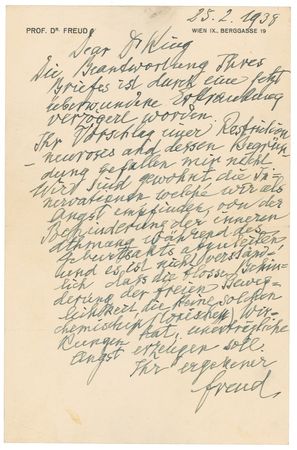 PROF. DR. FREUD
WIEN IX., BERGGASSE 19
25. 2. 1938
Dear Dr King
Die Beantwortung Ihres
Briefes ist durch eine jetzt
überwundene Erkrankung
verzögert worden.
Ihr Vorschlag einer Restriction
-neurosis und dessen Begrün-
dung gefallen mir nicht.
Wir sind gewohnt, die In-
nervationen welche wir als
Angst empfinden, von der
Behinderung der inneren
Athmung während des
Geburtsakts abzuleiten,
und es ist nicht verständ-
lich, dass die blosse Behin-
derung der freien Beweg-
lichkeit, die keine solchen
chemischen (toxischen) Wir-
kungen hat, unerträgliche
Angst erzeugen soll.
Ihr ergebener
Freud.